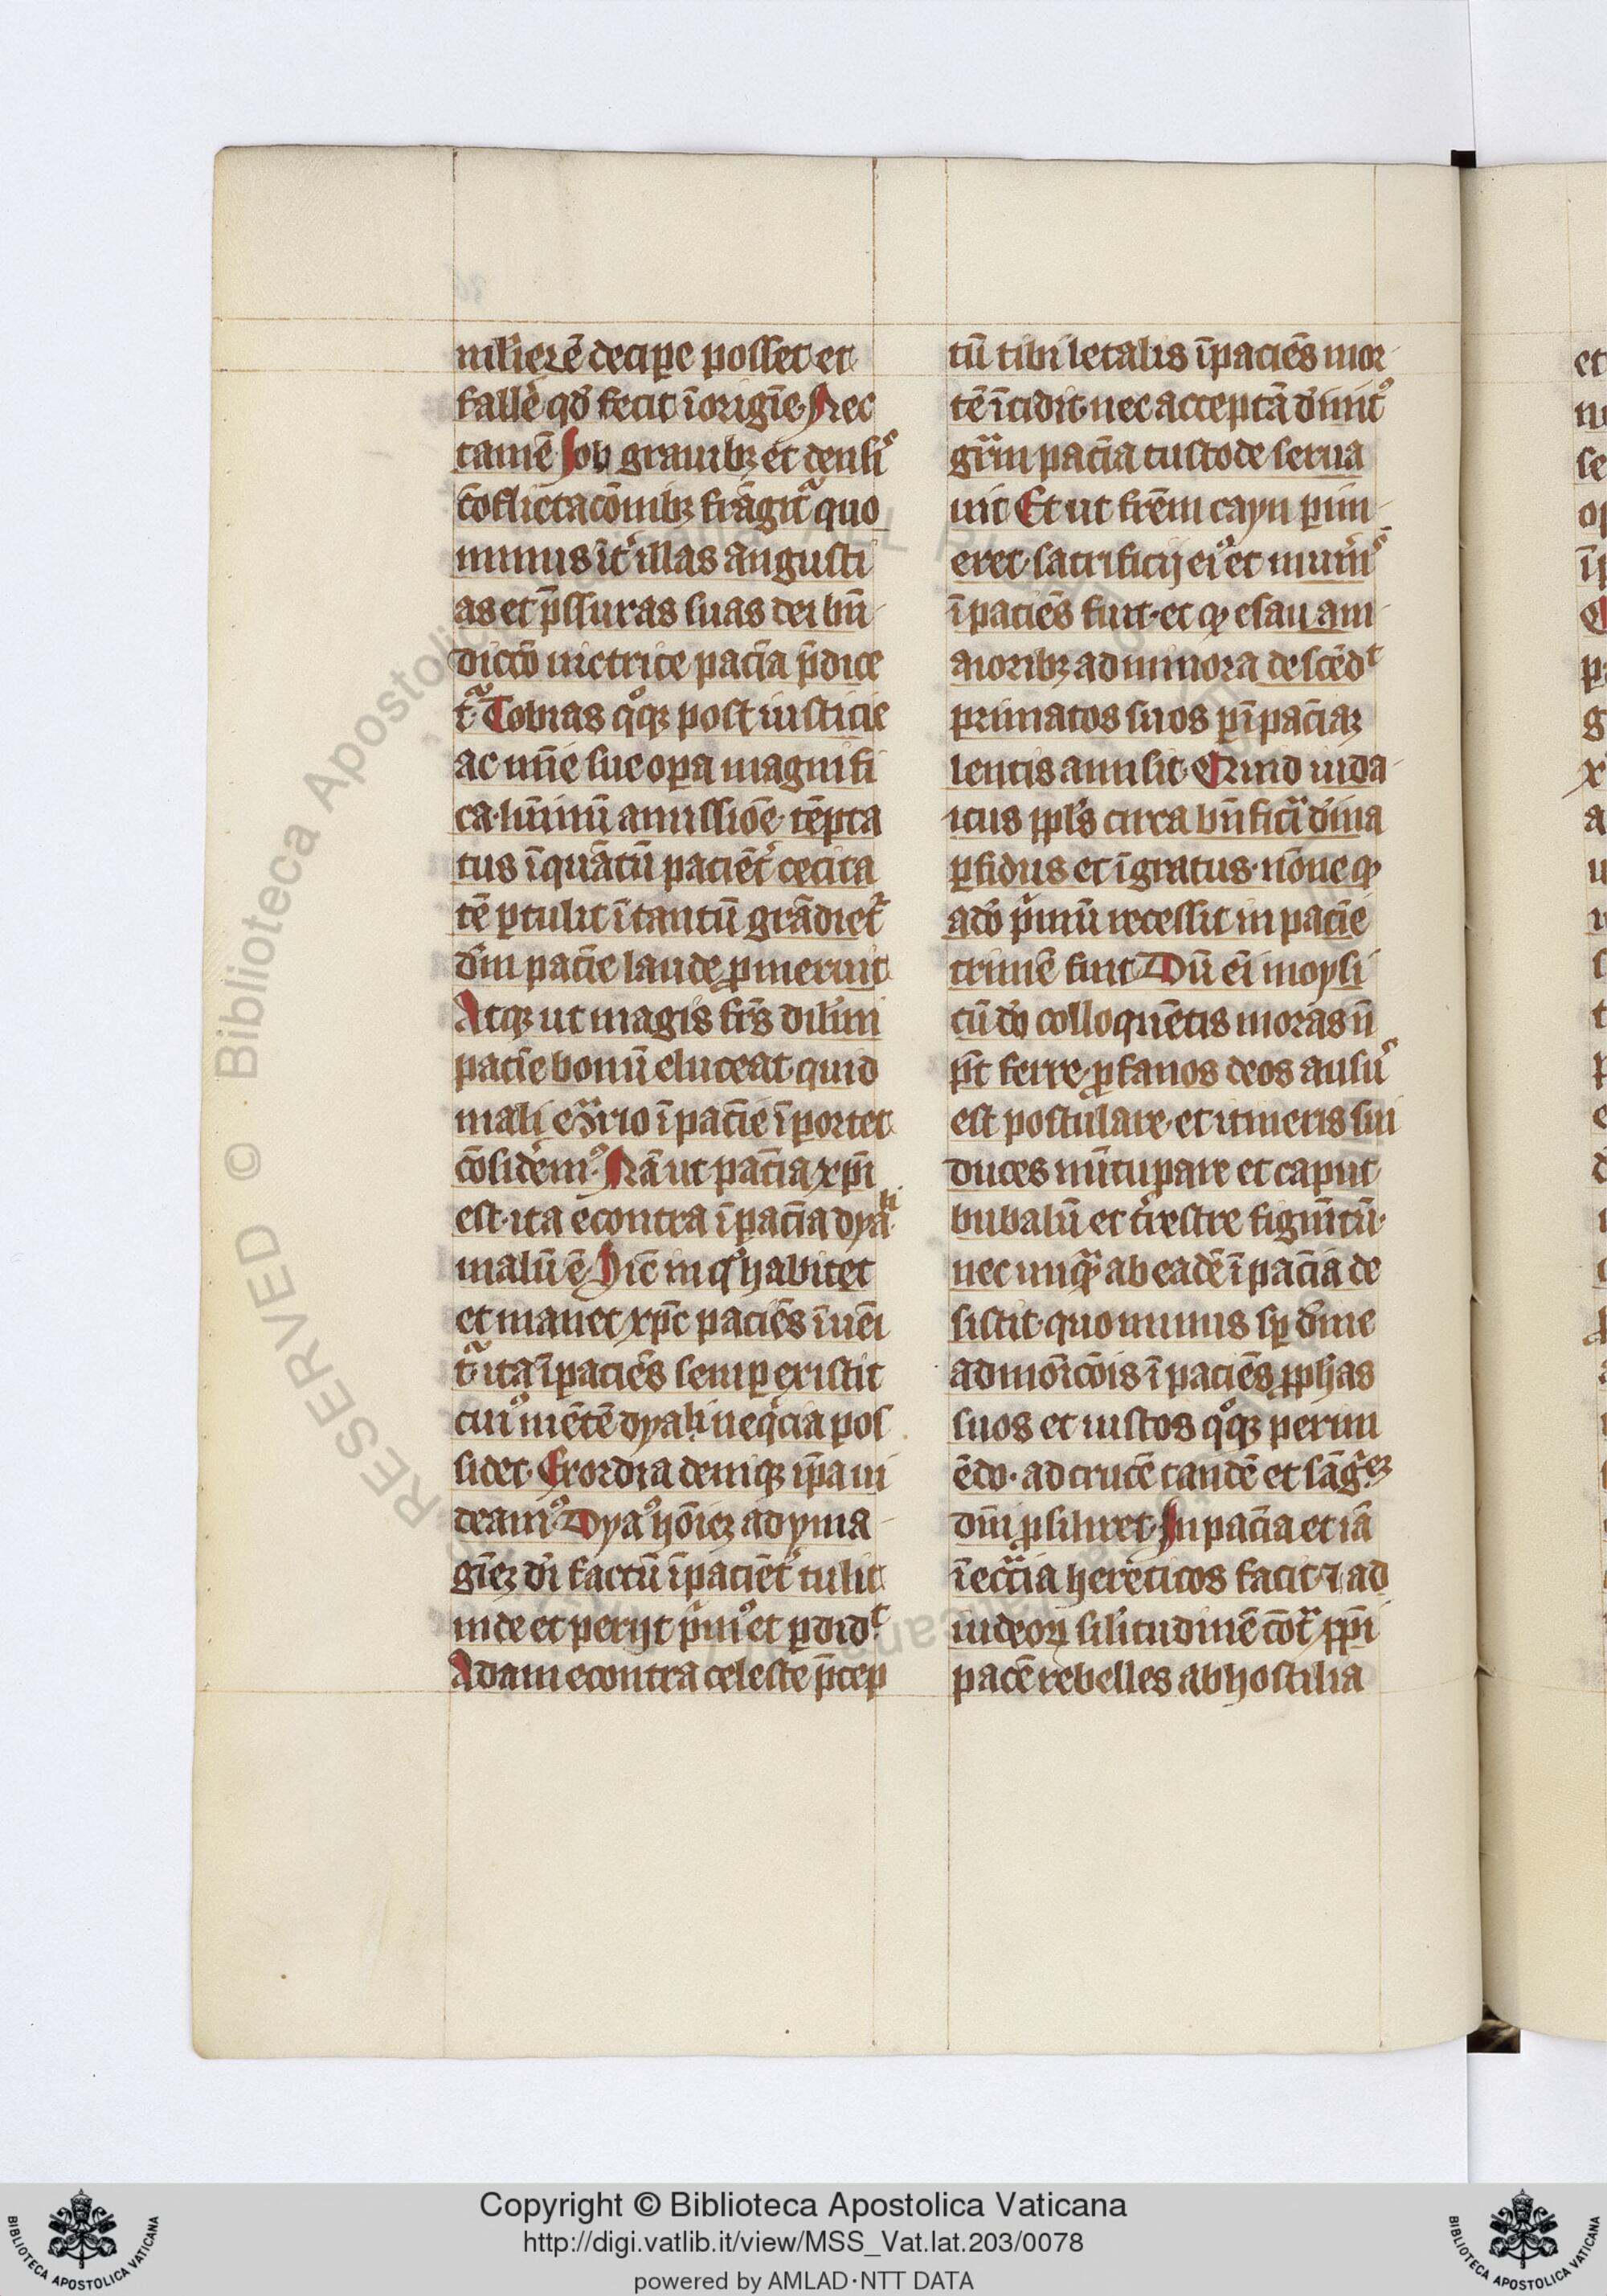 mulierē decipe posset et
fallē qd̄ fecit ī origīe. Nec
tamē Job grauibꝫ et densis
cōflictacōnibꝫ frāgit᷑ quo
minus īt̉ illas angusti
as et p̄ssuras suas dei bn̄
dictō uictrice pacīa p̄dice
t᷑. Tobias qͦqꝫ post iusticie
ac mīe sue opa magnifi
ca. luīnū amissiōe tēpta
tus īquātū paciēt̉ cecita
tē ꝑtulit ītantū grādiet̉
dm̄ pacīe laude ꝓmeruit.
Atqꝫ ut magis frs̄ dil̄mi
pacīe bonū eluceat. quid
mali eᷓrio īpacīe īportet.
cōsidem⁹. Nā ut pacīa xp̄i
est. ita econtra īpacīa dyabli
malū ē. Sic̄ in qͦ habitet
et manet xp̄c paciēs īuēi
t᷑. ita īpaciēs semꝑ existit
cui⁹ mētē dyabli neqͥcia pos
sidet. Exordia deniqꝫ ip̄a ui
deam⁹. Dya⁹ hōīeꝫ ad yma
gīeꝫ di̇ factū īpaciēt̉ tulit.
inde et perijt pͥm⁹ et ꝑdidͭ.
Adam econtra celeste p̄cep
tū tibi letalis īpaciēs mor
tē īcidit. nec acceptā diuīt⁹
gr̄am pacīa custode serua
uit Et ut frēm cayn ꝑim
eret. sacrificij ei⁹ et mun̄is
īpaciēs fuit. et ꝙ esau a m
aioribꝫ ad minora descēdͭ
primatos suos ꝑ īpacīaꝫ
lentis amisit. Quid iuda
icus ppl̄s circa bn̄ficīa dīuia
ꝑfidus et īgratus. nōne ꝙ
a dō pͥmū recessit inpacīe
crimē fuit. Dū ēī moysi
cū dō colloquētis moras n̄
pt̄ ferre. ꝓfanos deos ausus
est postulare. et itineris sui
duces nūcupare et caput
bubalū et t̉restre figm̄tū.
nec unqͣ ab eadē īpacīa de
sistit. quominus sp̄ dīuine
admōicōis īpaciēs ꝓphas
suos et iustos qͦqꝫ perim
ēdo. ad crucē tandē et sāgͥeꝫ
dn̄i ꝓsiliret. Inpacīa etiā
ī ecc̄ia hereticos facit. ⁊ ad
iudeoꝝ sil̄itudinē cōtͣ xp̄i
pacē rebelles ab hostilia
Copyright © Biblioteca Apostolica Vaticana
http://digi.vatlib.it/view/MSS_Vat.lat.203/0078
powered by AMLAD·NTT DATA